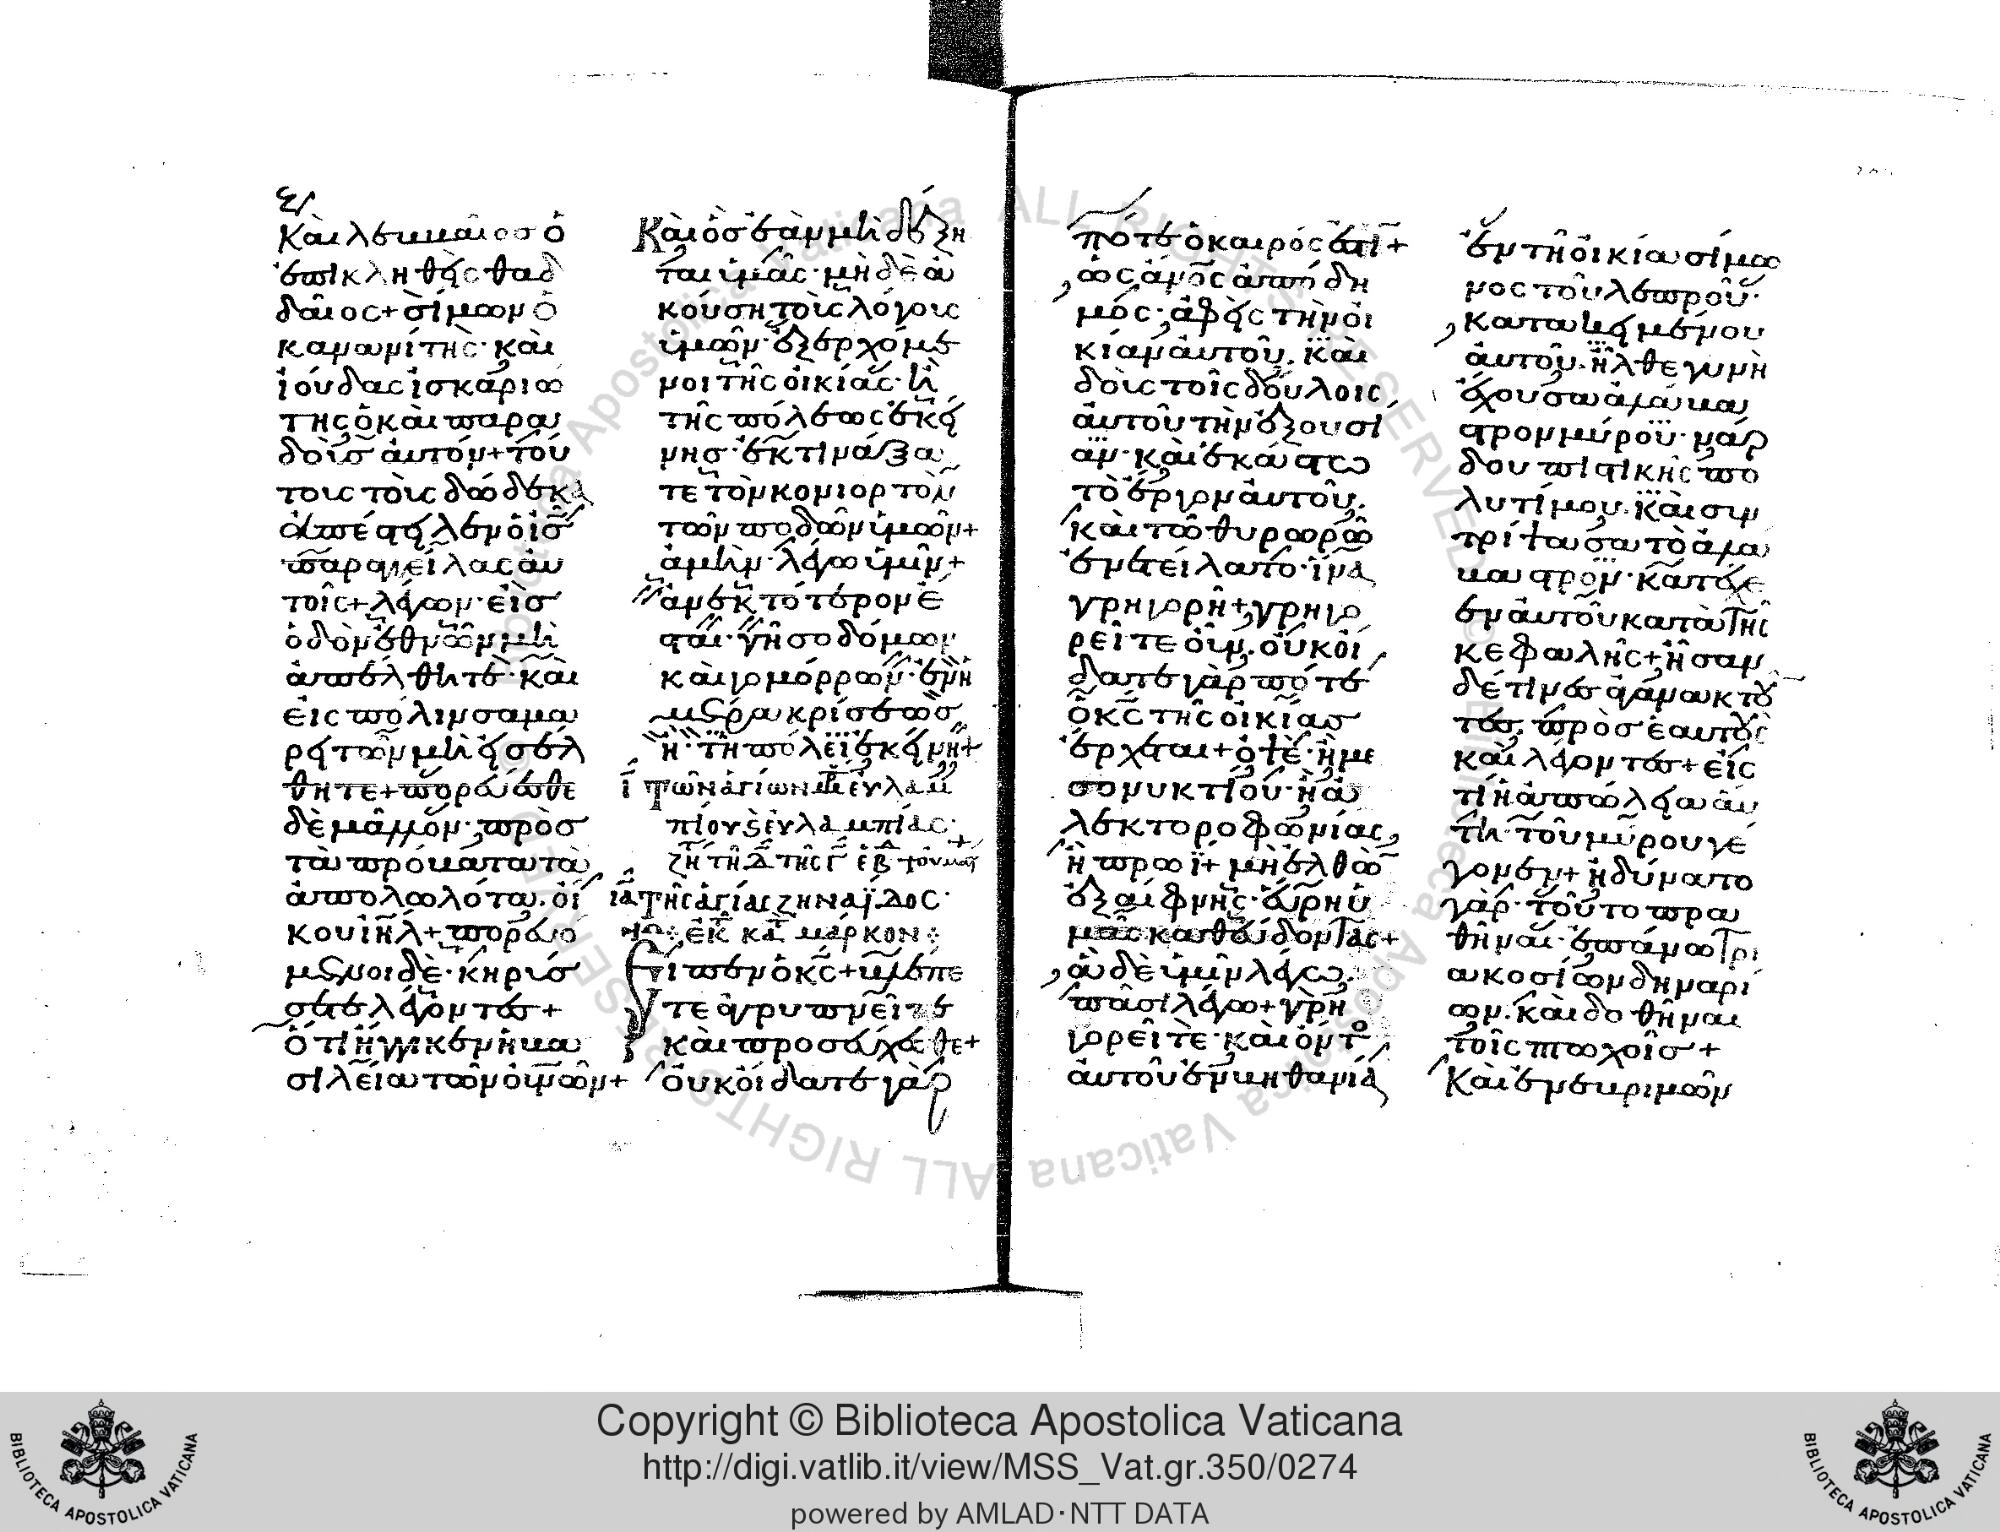 Καὶ λεββαῖος ὁ
ἐπικληθεὶς θαδ
δαῖος + σίμων ὁ
κανανίτης · καὶ
ἰούδας ἰσκαριώ
της ὁ καὶ παρα
δοὺς αὐτόν + τού
τους τοὺς δώδεκα
ἀπέστειλεν ὁ ἰς
παραγγείλας αὐ
τοῖς + λέγων · εἰς
ὁδὸν ἐθνῶν μὴ
ἀπέλθητε · καὶ
εἰς πόλιν σαμα
ρειτῶν μὴ εἰσέλ
θητε + πορεύεσθε
δὲ μᾶλλον · πρὸς
τὰ πρόβατα τὰ
ἀπολωλότα · οἴ
κου ιηλ + πορευό
μενοι δὲ · κηρύσ
σετε λέγοντες +
ὅτι ἤγγικεν ἡ βα
σιλεία τῶν οὐνῶν +
Καὶ ὃς ἐὰν μὴ δέξη
ται ὑμᾶς · μὴ δὲ ἀ
κούση τοὺς λόγους
ὑμῶν · ἐξερχόμε
νοι τῆς οἰκίας · ἢ
τῆς πόλεως ἐκεί
νης · ἐκτινάξα
τε τὸν κονιορτὸν
τῶν ποδῶν ὑμῶν +
ἀμὴν · λέγω ὑμῖν +
ἀνεκτότερον ἔ
σται · γῆ σοδόμων
καὶ γομόρρων · ἐν ἡ
μέρα κρίσεως
ἢ · τῆ πόλει ἐκείνη +
ι Τῶν ἁγίων εὐλαμ
πίου ς εὐλαμπίας ·
ζη τῆ Δ τῆς Γ ἑβ
ια Τῆς ἁγίας ζηναΐδος ·
ἐκ κατ μάρκον
Εἶπεν ὁ κς + βλέπε
τε ἀγρυπνεῖτε
καὶ προσεύχεσθε +
οὐκ οἴδατε γὰρ
πότε ὁ καιρός ἐστι +
ὡς ἄνος ἀπόδη
μος · ἀφεὶς τὴν οἰ
κίαν αὐτοῦ · καὶ
δοὺς τοῖς δούλοις
αὐτοῦ τὴν ἐξουσί
αν · καὶ ἑκάστω
τὸ ἔργον αὐτοῦ ·
καὶ τῶ θυρωρῶ
ἐνετείλατο · ἵνα
γρηγορῆ + γρηγο
ρεῖτε οὖν · οὐκ οἴ
δατε γὰρ πότε
ὁ κς τῆς οἰκίας
ἔρχεται + ὀψὲ · ἢ με
σονυκτίου · ἢ ἀ
λεκτοροφωνίας
ἢ πρωΐ + μὴ ἐλθὼν
ἐξαίφνης · εὕρη ὑ
μᾶς καθεύδοντας +
ἃ δὲ ὑμῖν λέγω ·
πᾶσι λέγω + γρη
γορεῖτε · καὶ ὄντος
αὐτοῦ ἐν βηθανία
ἐν τῆ οἰκία σίμω
νος τοῦ λεπροῦ ·
κατακειμένου
αὐτοῦ · ἦλθε γυνὴ
ἔχουσα ἀλάβα
στρον μύρου · νάρ
δου πιστικῆς πο
λυτίμου · καὶ συν
τρίψασα τὸ ἀλά
βαστρον · κατέχε
εν αὐτοῦ κατὰ τῆς
κεφαλῆς + ἦσαν
δέ τινες ἀγανακτοῦν
τες · πρὸς ἑαυτοὺς
καὶ λέγοντες + εἰς
τί ἡ ἀπώλεια αὕ
τη · τοῦ μύρου γέ
γονεν + ἠδύνατο
γάρ · τοῦτο πρα
θῆναι · ἐπάνω τρι
ακοσίων δηναρί
ων · καὶ δοθῆναι
τοῖς πτωχοῖς +
Καὶ ἐνεβριμῶν
Copyright © Biblioteca Apostolica Vaticana
http://digi.vatlib.it/view/MSS_Vat.gr.350/0274
powered by AMLAD·NTT DATA
BIBLIOTECA APOSTOLICA VATICANA
BIBLIOTECA APOSTOLICA VATICANA